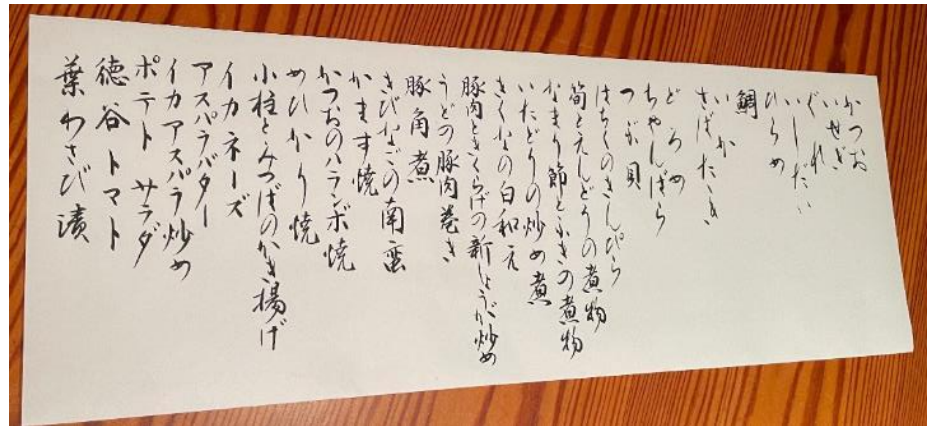 かつお
いせぎ
ぐれ
いしだい
ひらめ
鯛
いか
さばたたき
どろめ
ちゃんばら
つが貝
はちくのきんぴら
筍とえんどうの煮物
なまり節とふきの煮物
いたどりの炒め煮
きくなの白和え
豚肉ときくらげの新しょうが炒め
うどの豚肉巻き
豚角煮
きびなごの南蛮
かます焼
かつおのハランボ焼
めひかり焼
小柱とみつばのかき揚げ
イカネーズ
アスパラバター
イカアスパラ炒め
ポテトサラダ
徳谷トマト
葉わさび漬